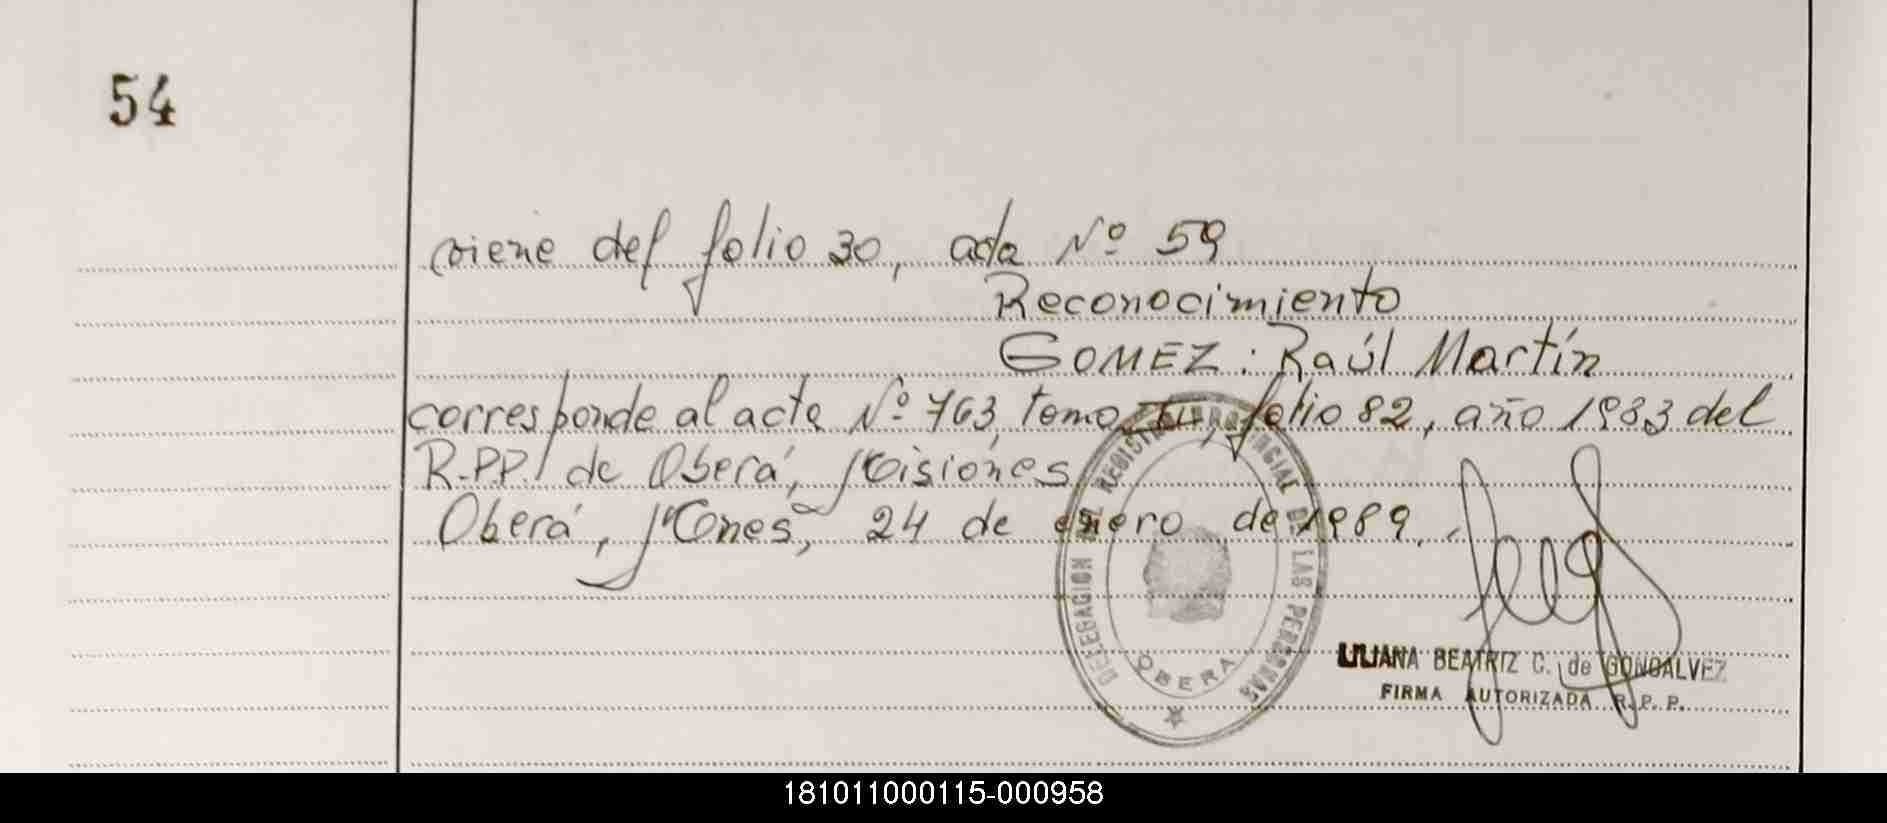 54
viene del folio 30, acta Nº 59
Reconocimiento
GOMEZ: Raúl Martín
corresponde al acta Nº 763, tomo III, folio 82, año 1983 del
R.P.P. de Oberá, Misiones
Oberá, Mnes, 24 de enero de 1989.
DELEGACION DEL REGISTRO PROVINCIAL DE LAS PERSONAS
OBERA
LILIANA BEATRIZ C. de GONCALVEZ
FIRMA AUTORIZADA R. P. P.
181011000115-000958